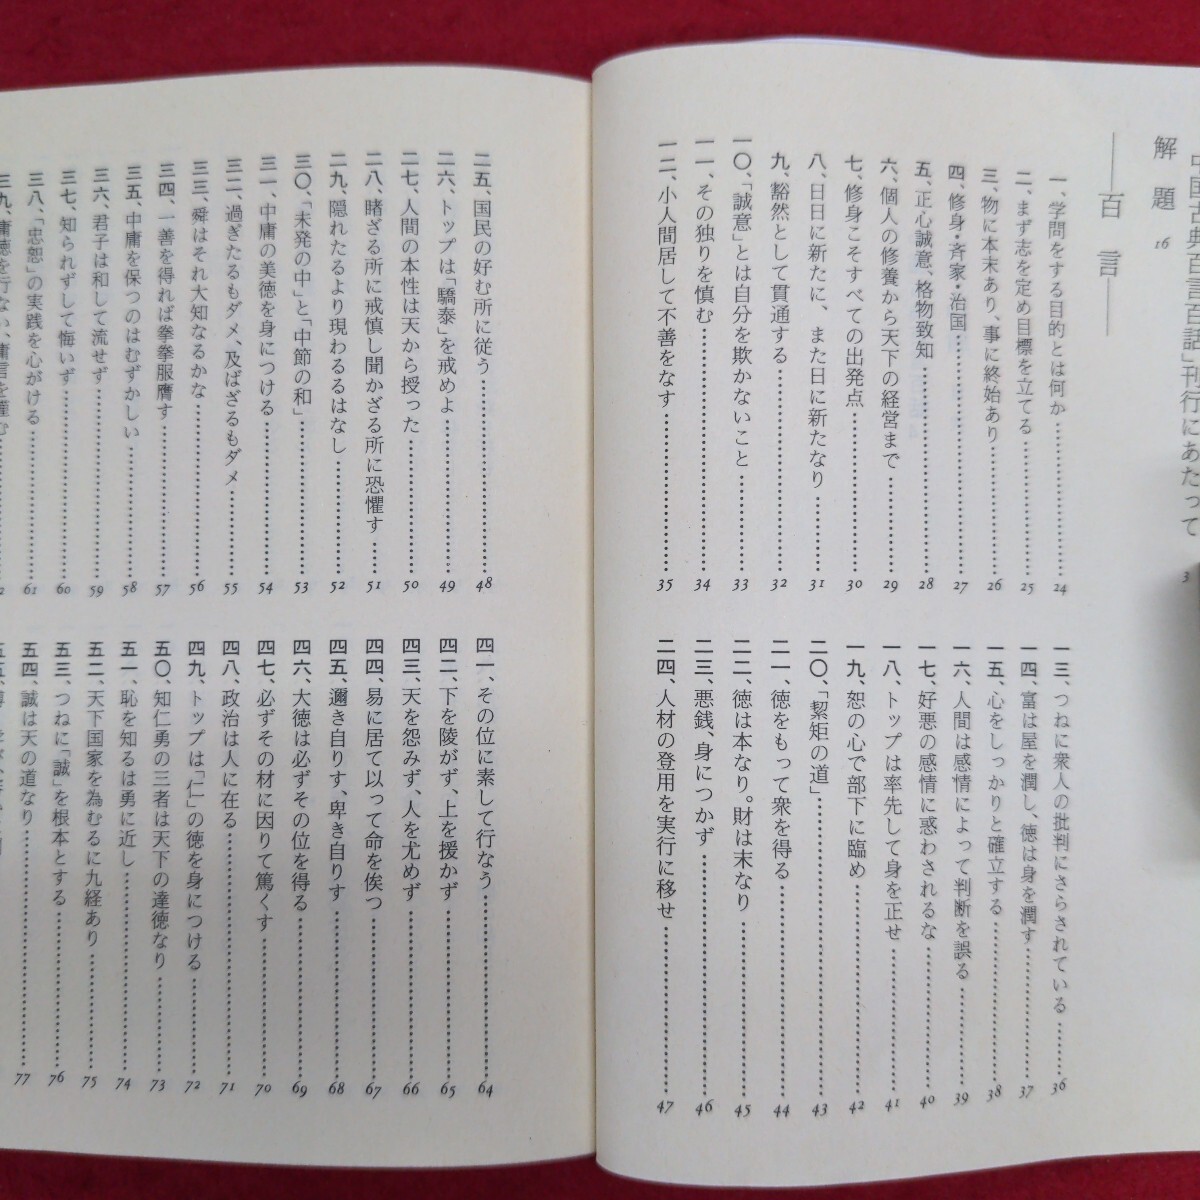 中国古典百言百話」刊行にあたって 3
解題 16
――百言――
一、学問をする目的とは何か 24
二、まず志を定め目標を立てる 25
三、物に本末あり、事に終始あり 26
四、修身・斉家・治国 27
五、正心誠意、格物致知 28
六、個人の修養から天下の経営まで 29
七、修身こそすべての出発点 30
八、日日に新たに、また日に新たなり 31
九、豁然として貫通する 32
一〇、「誠意」とは自分を欺かないこと 33
一一、その独りを慎む 34
一二、小人間居して不善をなす 35
一三、つねに衆人の批判にさらされている 36
一四、富は屋を潤し、徳は身を潤す 37
一五、心をしっかりと確立する 38
一六、人間は感情によって判断を誤る 39
一七、好悪の感情に惑わされるな 40
一八、トップは率先して身を正せ 41
一九、恕の心で部下に臨め 42
二〇、「絜矩の道」 43
二一、徳をもって衆を得る 44
二二、徳は本なり。財は末なり 45
二三、悪銭、身につかず 46
二四、人材の登用を実行に移せ 47
二五、国民の好む所に従う 48
二六、トップは「驕泰」を戒めよ 49
二七、人間の本性は天から授った 50
二八、睹ざる所に戒慎し聞かざる所に恐懼す 51
二九、隠れたるより現わるるはなし 52
三〇、「未発の中」と「中節の和」 53
三一、中庸の美徳を身につける 54
三二、過ぎたるもダメ、及ばざるもダメ 55
三三、舜はそれ大知なるかな 56
三四、一善を得れば拳拳服膺す 57
三五、中庸を保つのはむずかしい 58
三六、君子は和して流せず 59
三七、知られずして悔いず 60
三八、「忠恕」の実践を心がける 61
三九、庸徳を行ない、庸言を謹む
四一、その位に素して行なう 64
四二、下を陵がず、上を援かず 65
四三、天を怨みず、人を尤めず 66
四四、易に居て以って命を俟つ 67
四五、邇き自りす、卑き自りす 68
四六、大徳は必ずその位を得る 69
四七、必ずその材に因りて篤くす 70
四八、政治は人に在る 71
四九、トップは「仁」の徳を身につける 72
五〇、知仁勇の三者は天下の達徳なり 73
五一、恥を知るは勇に近し 74
五二、天下国家を為むるに九経あり 75
五三、つねに「誠」を根本とする 76
五四、誠は天の道なり 77